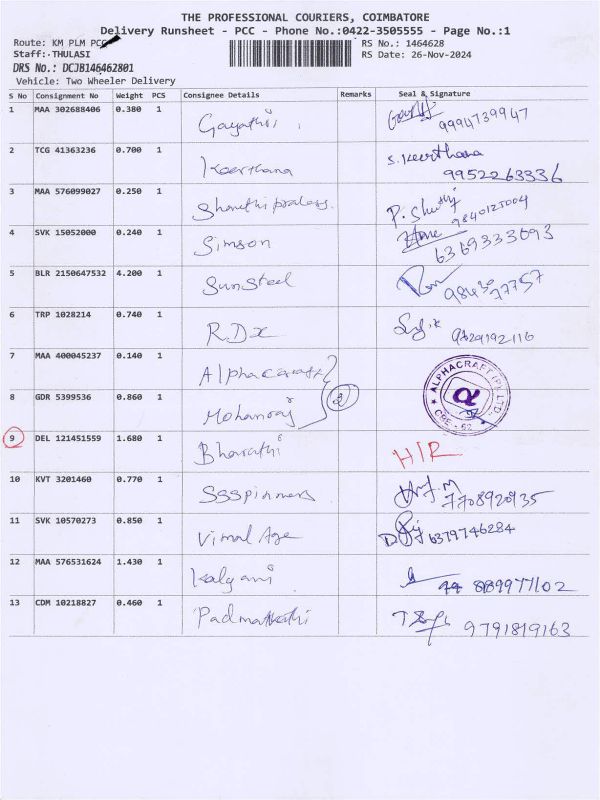 THE PROFESSIONAL COURIERS, COIMBATORE
Delivery Runsheet - PCC - Phone No.:0422-3505555 - Page No.:1
Route: KM PLM PCC
RS No.: 1464628
Staff: THULASI
RS Date: 26-Nov-2024
DRS No.: DCJB146462801
Vehicle: Two Wheeler Delivery
S No Consignment No Weight PCS Consignee Details Remarks Seal & Signature
1 MAA 302688406 0.380 1 Gayathri 9994739947
2 TCG 41363236 0.700 1 Keerthana S. Keerthana 9952263336
3 MAA 576099027 0.250 1 P. 9840125004
4 SVK 15052000 0.240 1 Simson 6369333093
5 BLR 2150647532 4.200 1 Sunsteel 98430 77757
6 TRP 1028214 0.740 1 R.Dx
7 MAA 400045237 0.140 1 Alphacraft
8 GDR 5399536 0.860 1 Mohanraj 2
ALPHACRAFT (P) LTD.
CBE - 62
9 DEL 121451559 1.680 1 Bharathi
10 KVT 3201460 0.770 1 SSSpinners 7708920935
11 SVK 10570273 0.850 1 Vimal Age 6379746284
12 MAA 576531624 1.430 1 Kalyani 8899771102
13 CDM 10218827 0.460 1 9791819163